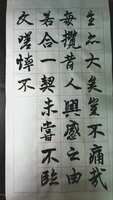 生亦大矣豈不痛哉
每攬昔人興感之由
若合一契未嘗不臨
文嗟悼不